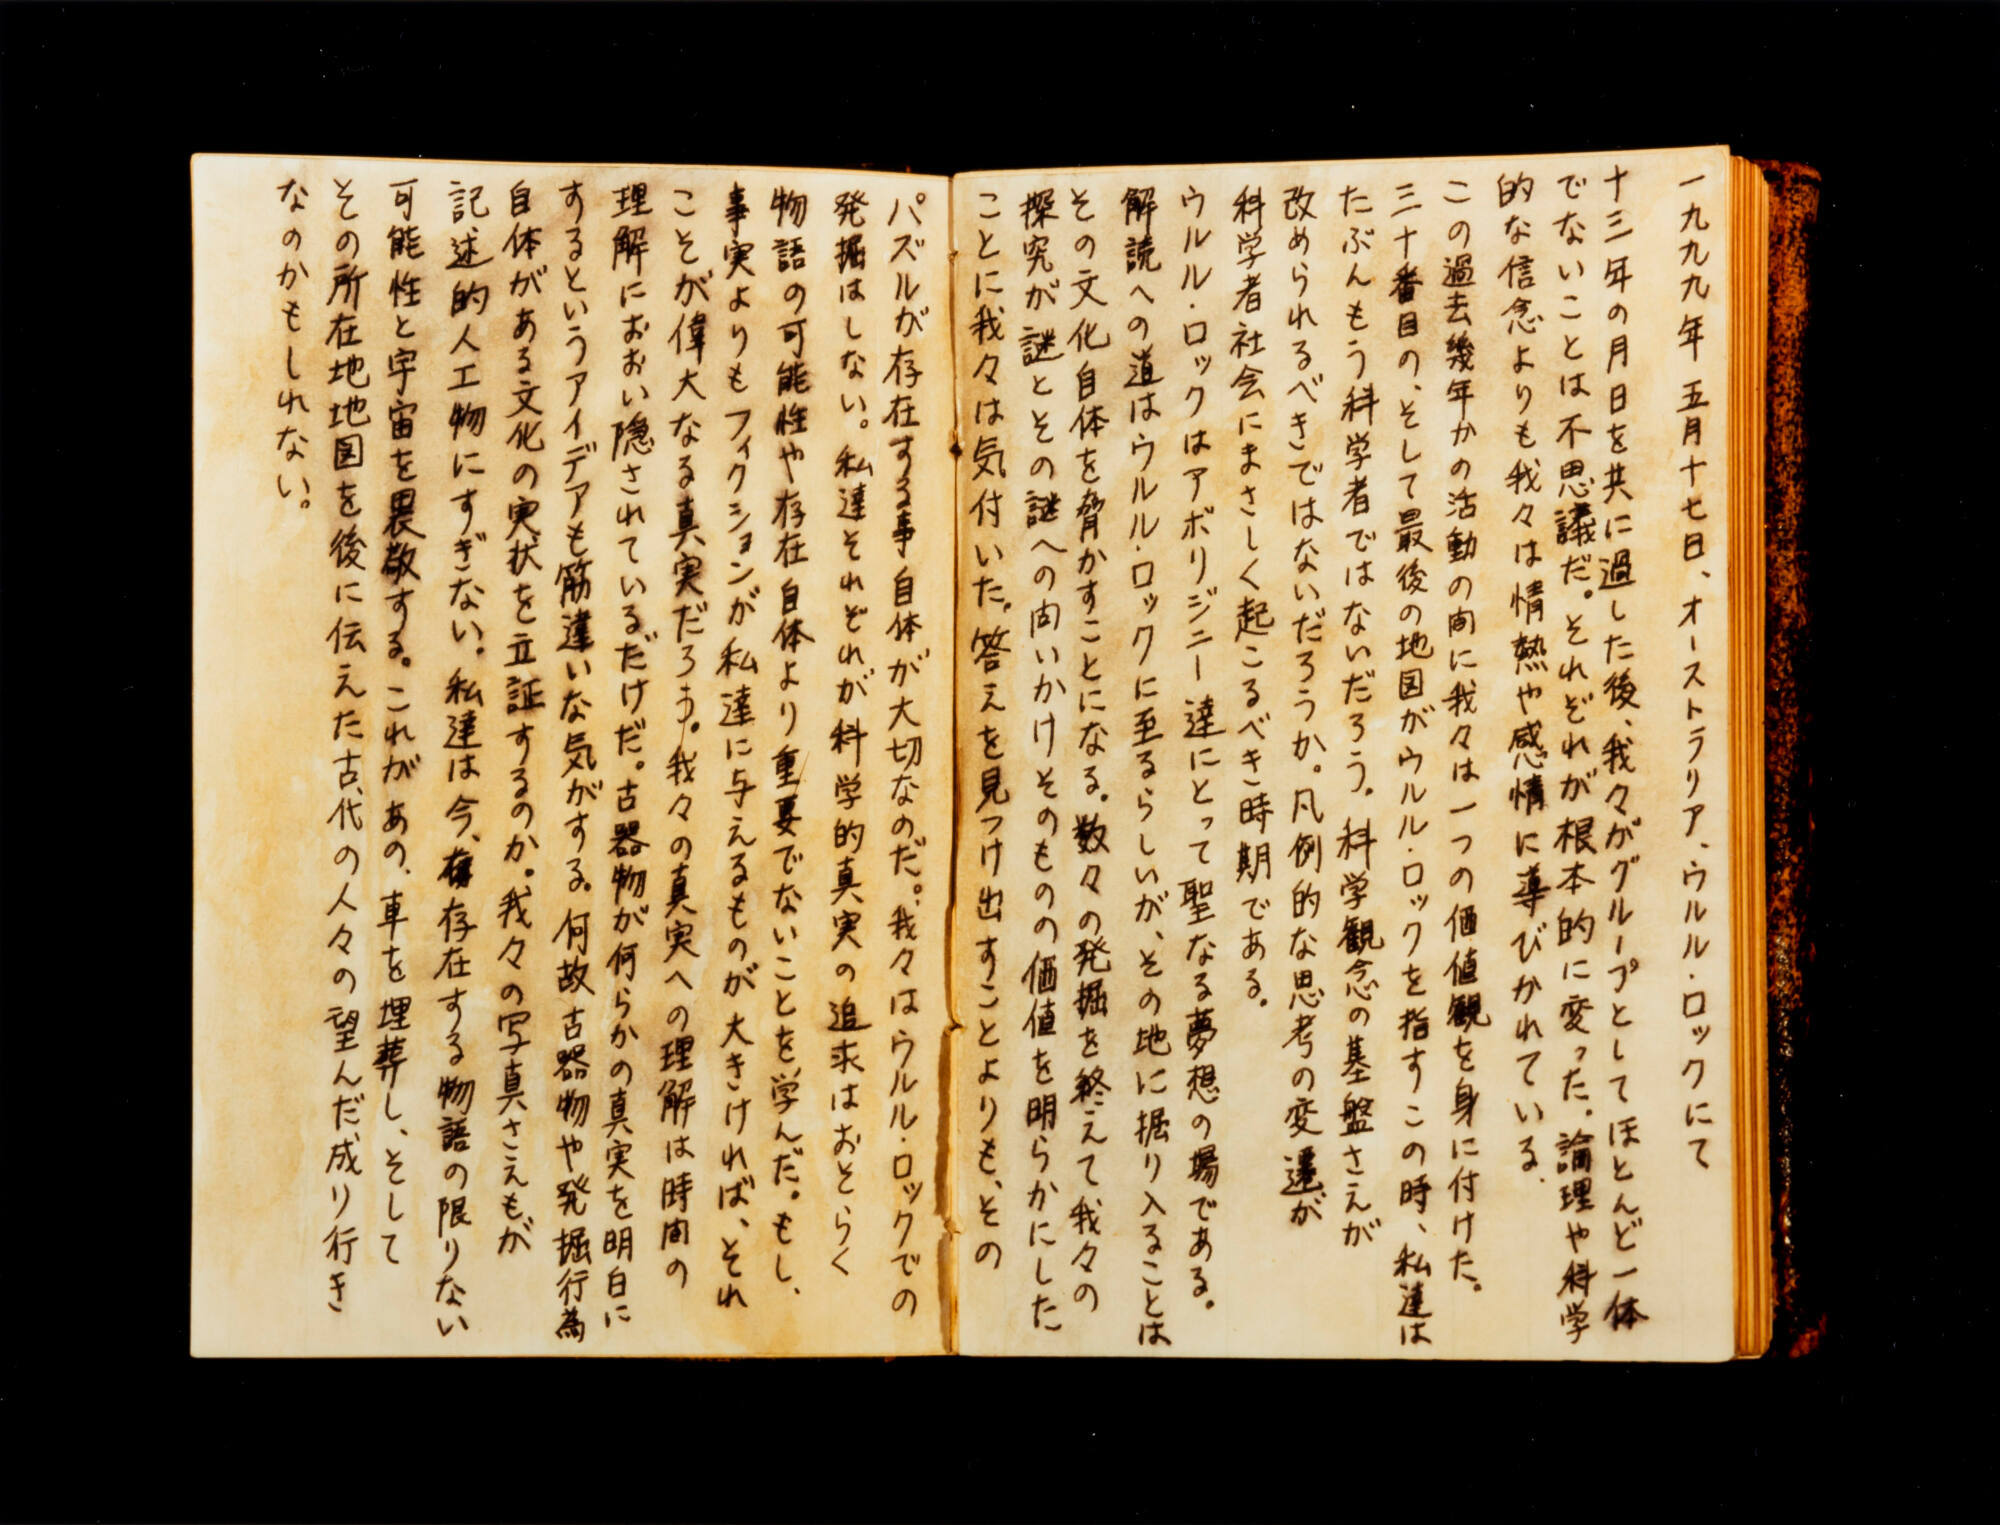 一九九九年 五月十七日、オーストラリア、ウルル・ロックにて
十三年の月日を共に過した後、我々がグループとしてほとんど一体
でないことは不思議だ。それぞれが根本的に変った。論理や科学
的な信念よりも我々は情熱や感情に導びかれている.
この過去幾年かの活動の間に我々は一つの価値観を身に付けた。
三十番目の、そして最後の地図がウルル・ロックを指すこの時、私達は
たぶんもう科学者ではないだろう。科学観念の基盤さえが
改められるべきではないだろうか。凡例的な思考の変遷が
科学者社会にまさしく起こるべき時期である。
ウルル・ロックはアボリジニー達にとって聖なる夢想の場である。
解読への道はウルル・ロックに至るらしいが、その地に掘り入ることは
その文化自体を脅かすことになる。数々の発掘を終えて我々の
探究が謎とその謎への問いかけそのものの価値を明らかにした
ことに我々は気付いた。答えを見つけ出すことよりも、その
パズルが存在する事自体が大切なのだ。我々はウルル・ロックでの
発掘はしない。私達それぞれが科学的真実の追求はおそらく
物語の可能性や存在自体より重要でないことを学んだ。もし、
事実よりもフィクションが私達に与えるものが大きければ、それ
こそが偉大なる真実だろう。我々の真実への理解は時間の
理解におおい隠されているだけだ。古器物が何らかの真実を明白に
するというアイデアも筋違いな気がする。何故古器物や発掘行為
自体がある文化の実状を立証するのか。我々の写真さえもが
記述的人工物にすぎない。私達は今、存在する物語の限りない
可能性と宇宙を畏敬する。これがあの、車を埋葬し、そして
その所在地地図を後に伝えた古代の人々の望んだ成り行き
なのかもしれない。